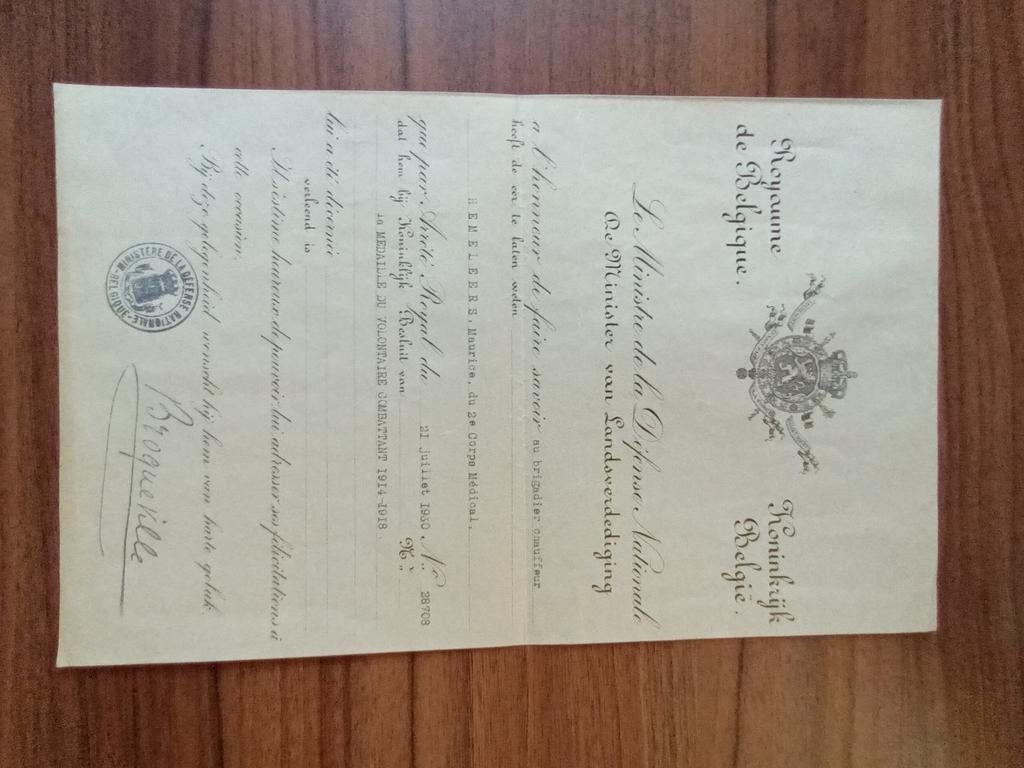 Royaume
de Belgique.
Koninkrijk
België.
Le Ministre de la Défense Nationale
De Minister van Landsverdediging
a l'honneur de faire savoir au brigadier chauffeur
heeft de eer te laten weten
HEMELEERS, Maurice, du 2e Corps Médical.
que par Arrêté Royal du 21 juillet 1930 N.° 28708
dat hem bij Koninklijk Besluit van N.°
la MEDAILLE DU VOLONTAIRE COMBATTANT 1914-1918.
lui a été décernée
verleend is
Il s'estime heureux de pouvoir lui adresser ses félicitations à
cette occasion.
Bij deze gelegenheid wenscht hij hem van harte geluk.
MINISTÈRE DE LA DÉFENSE NATIONALE
BELGIQUE
Broqueville